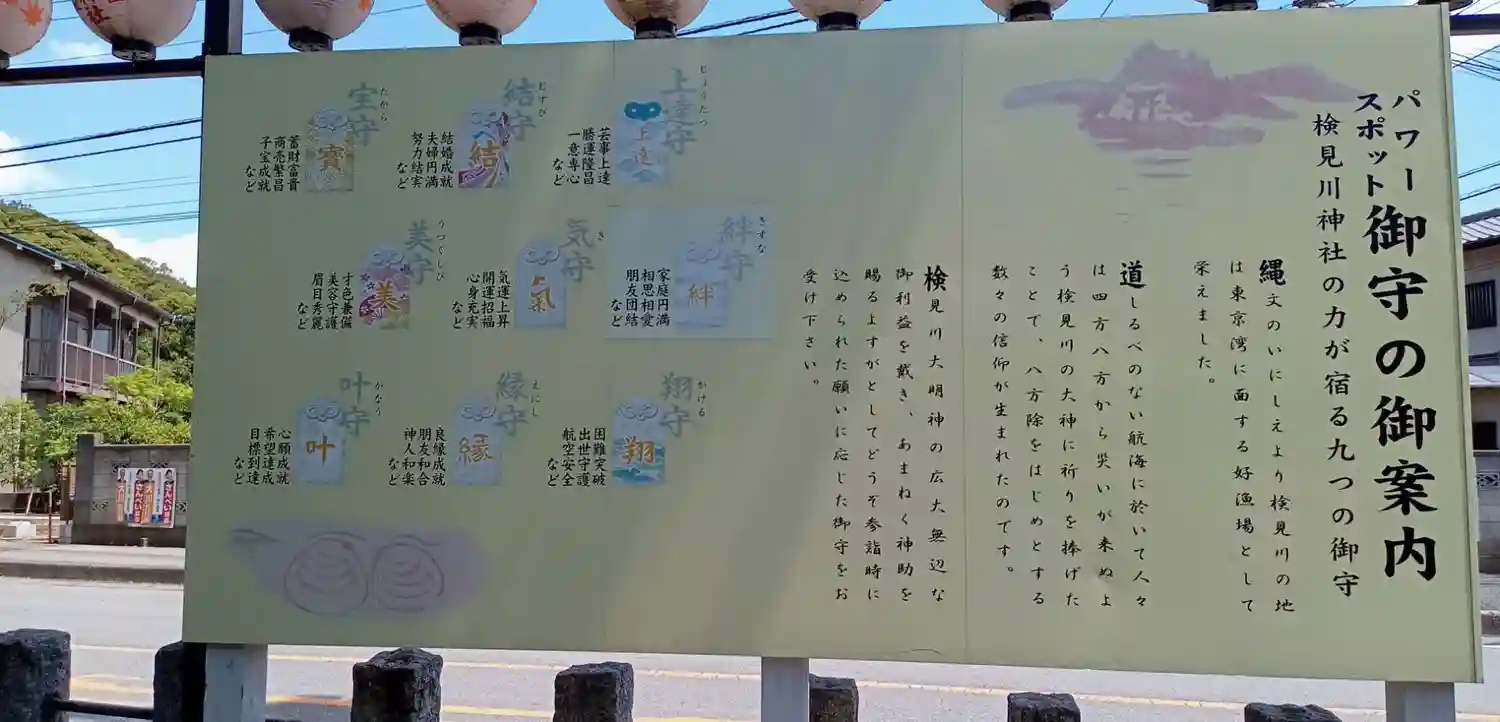 パワースポット御守の御案内
検見川神社の力が宿る九つの御守
縄文のいにしえより検見川の地
は東京湾に面する好漁場として
栄えました。
道しるべのない航海に於いて人々
は四方八方から災いが来ぬよ
う検見川の大神に祈りを捧げた
ことで、八方除をはじめとする
数々の信仰が生まれたのです。
検見川大明神の広大無辺な
御利益を戴き、あまねく神助を
賜るよすがとしてどうぞ参詣時に
込められた願いに応じた御守をお
受け下さい。
じょうたつ
上達守
上達
芸事上達
勝運隆昌
一意専心
など
むすび
結守
結
結婚成就
夫婦円満
努力結実
など
たから
宝守
寳
蓄財富貴
商売繁昌
子宝成就
など
きずな
絆守
絆
家庭円満
相思相愛
朋友団結
など
き
気守
氣
気運上昇
開運招福
心身充実
など
うつくしび
美守
美
才色兼備
美容守護
眉目秀麗
など
かける
翔守
翔
困難突破
出世守護
航空安全
など
えにし
縁守
縁
良縁成就
朋友和合
神人和楽
など
かなう
叶守
叶
心願成就
希望達成
目標到達
など